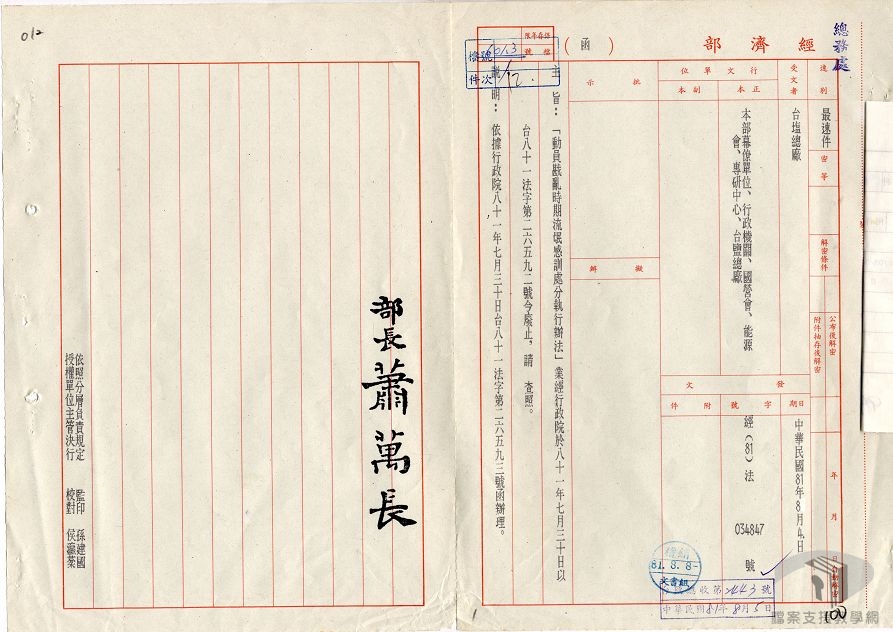 總務處
經濟部（函）
速別
最速件
密等
解密條件
公布後解密
附件抽存後解密
年 月 日自動解密
受文者
台塩總廠
行文單位
正本
副本
本部幕僚單位、行政機關、國營會、能源
會、專研中心、台鹽總廠
發文
日期
中華民國81年8月4日
字號
經(81)法 034847 號
附件
批示
擬辦
保存年限
檔號
檔號 6013
件次 1/12.
主旨：「動員戡亂時期流氓感訓處分執行辦法」業經行政院於八十一年七月三十日以
台八十一法字第二六五九二號令廢止，請 查照。
說明：依據行政院八十一年七月三十日台八十一法字第二六五九三號函辦理。
檔
81.8.8-
文書組
收第2443號
中華民國81年8月5日
100
檔案支援教學網
1
部長 蕭萬長
依照分層負責規定
授權單位主管決行
監印 孫建國
校對
012